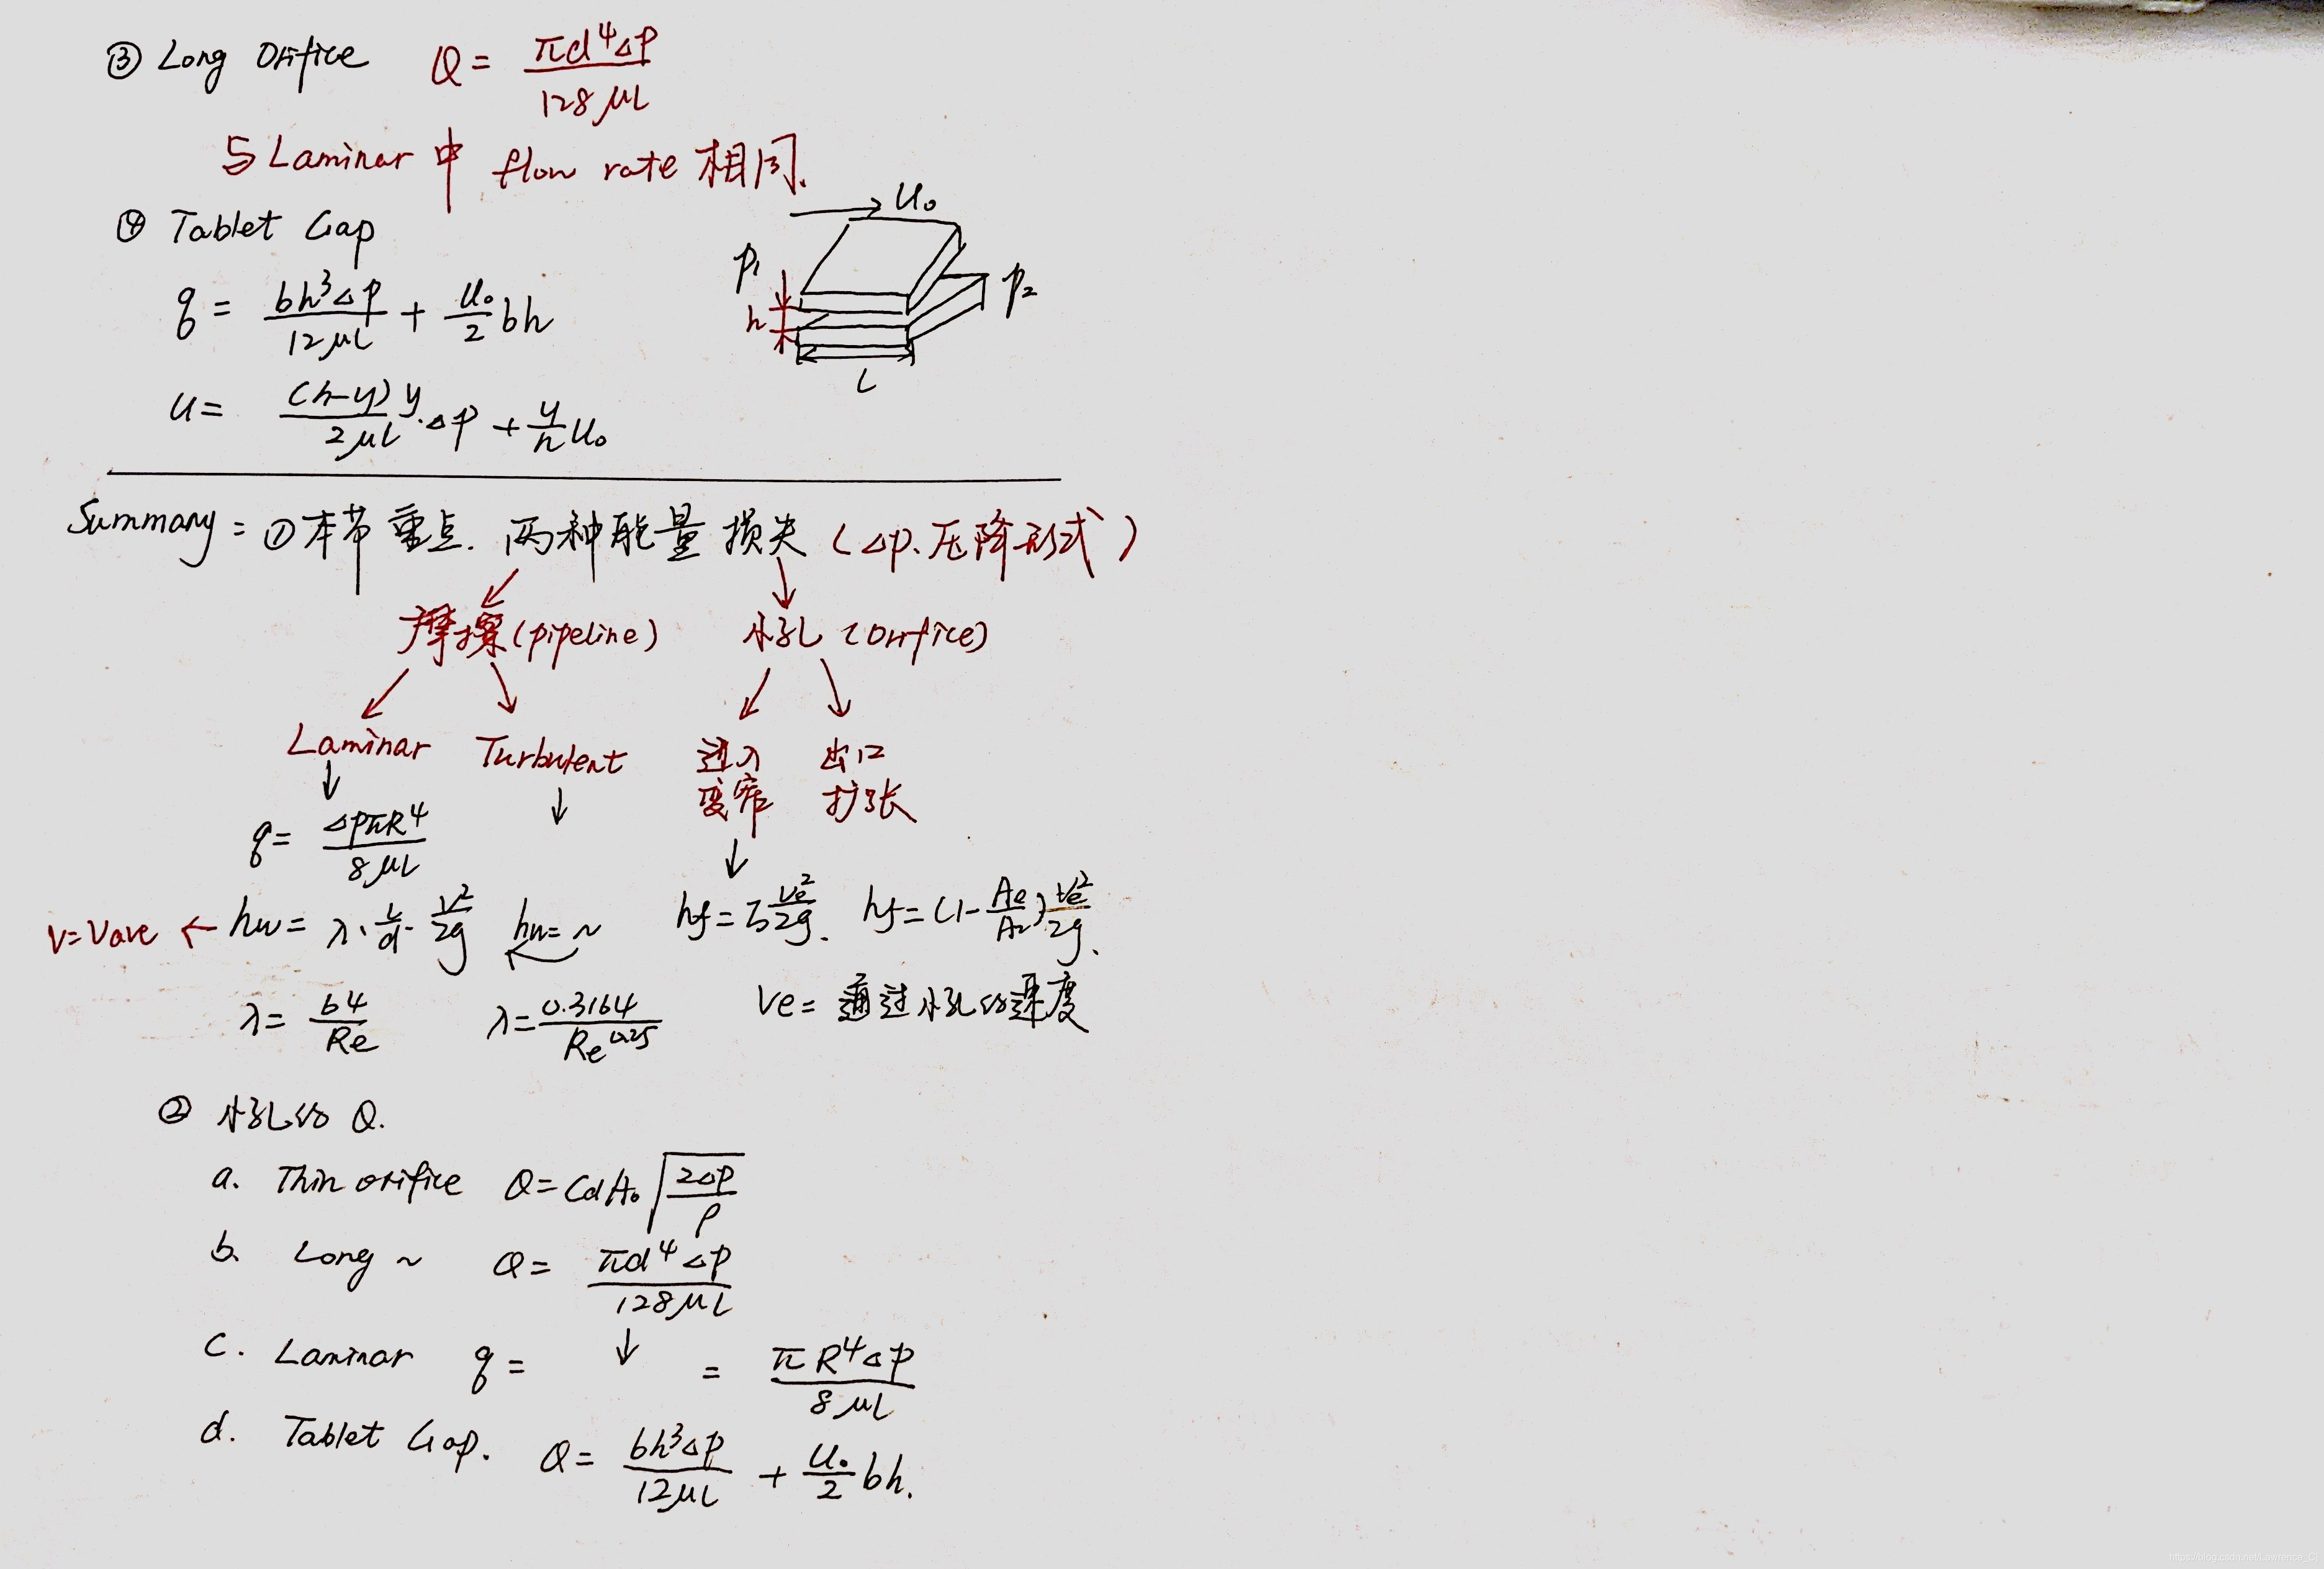 ③ Long Orifice Q = πd⁴△P / 128μL
与Laminar中 flow rate 相同.
④ Tablet Gap
U₀
p₁
p₂
h
L
q = bh³△P / 12μL + U₀/2 bh
u = (h-y)y / 2μL · △P + y/h U₀
Summary: ①本节重点. 两种能量损失 (△P.压降形式)
摩擦(pipeline) 小孔(Orifice)
Laminar Turbulent 进入变窄 出口扩张
q = △PπR⁴ / 8μL
V=Vave ← hw = λ · L/d · V²/2g hw = ~ hf = ζ Ve²/2g. hf = (1 - Ae/A₂) Ve²/2g.
λ = 64/Re λ = 0.3164/Re^0.25 Ve = 通过小孔的速度
② 小孔的 Q.
a. Thin orifice Q = CdA₀ √(2△P/ρ)
b. Long ~ Q = πd⁴△P / 128μL
c. Laminar q = ↓ = πR⁴△P / 8μL
d. Tablet Gap. Q = bh³△P / 12μL + U₀/2 bh.